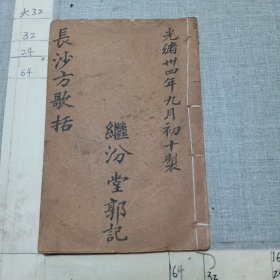 光緒卅四年九月初十製
長沙方歌括
繼汾堂郭記
大32
32
24
64
64
32